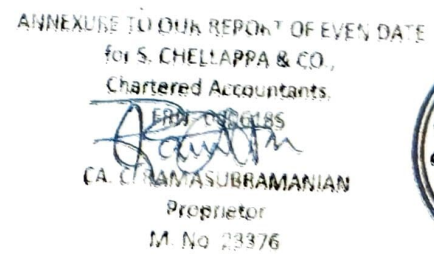 ANNEXURE TO OUR REPORT OF EVEN DATE
for S. CHELLAPPA & CO.,
Chartered Accountants.
FRN
CA. C. RAMASUBRAMANIAN
Proprietor
M. No 23376